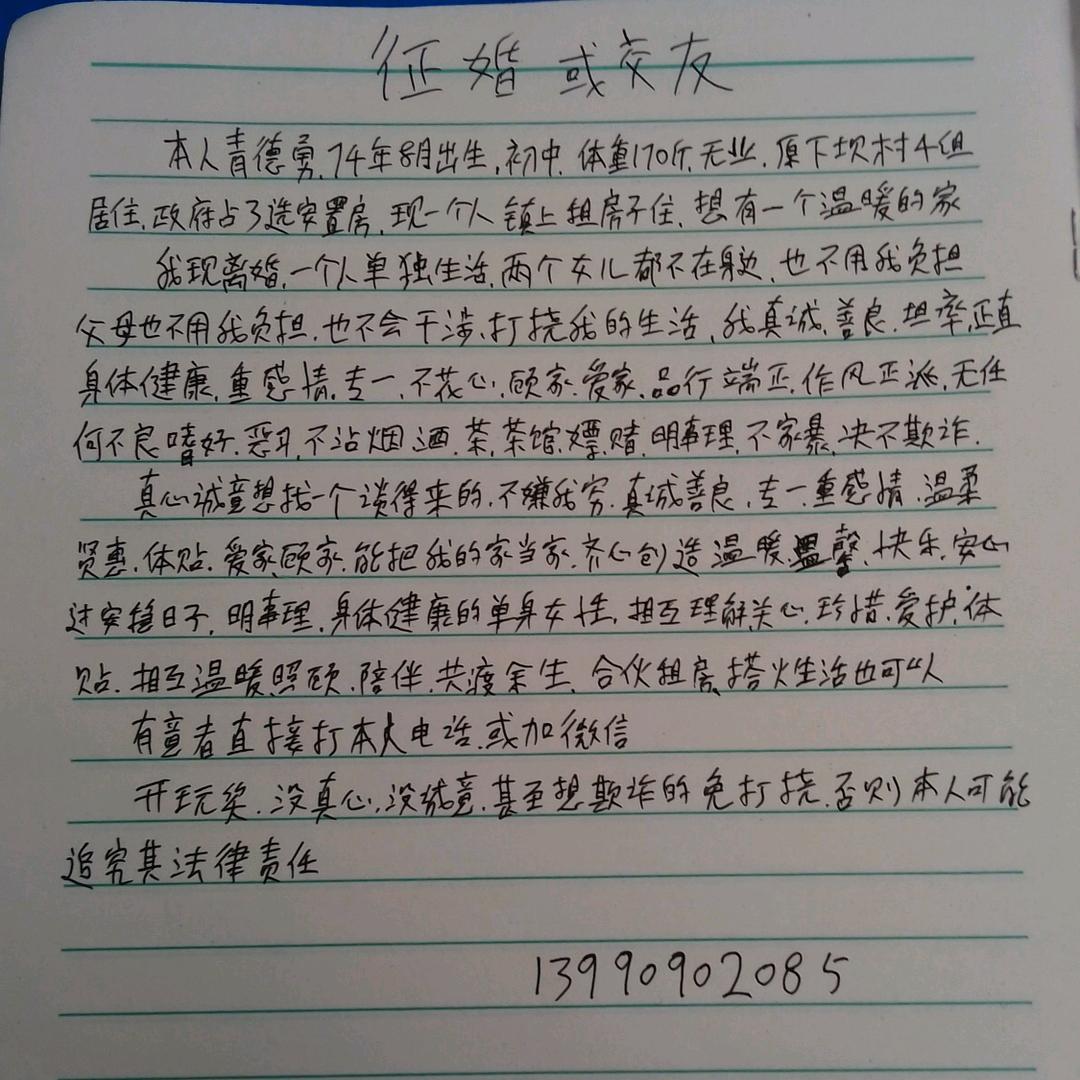 征婚或交友
本人青德勇,74年8月出生,初中,体重170斤,无业,原下坝村4组
居住,政府占了选安置房,现一个人镇上租房子住,想有一个温暖的家
我现离婚,一个人单独生活,两个女儿都不在身边,也不用我负担
父母也不用我负担,也不会干涉,打挠我的生活,我真诚,善良,坦率,正直
身体健康,重感情,专一,不花心,顾家,爱家,品行端正,作风正派,无任
何不良嗜好,恶习,不沾烟酒,茶,茶馆,嫖,赌,明事理,不家暴,决不欺诈.
真心诚意想找一个谈得来的,不嫌我穷,真诚善良,专一重感情,温柔
贤惠,体贴,爱家,顾家,能把我的家当家,齐心创造温暖,温馨,快乐,安心
过安稳日子,明事理,身体健康的单身女性,相互理解,关心,珍惜,爱护,体
贴,相互温暖,照顾,陪伴,共渡余生,合伙租房,搭火生活也可以
有意者直接打本人电话,或加微信
开玩笑,没真心,没诚意,甚至想欺诈的免打挠,否则本人可能
追究其法律责任
13990902085